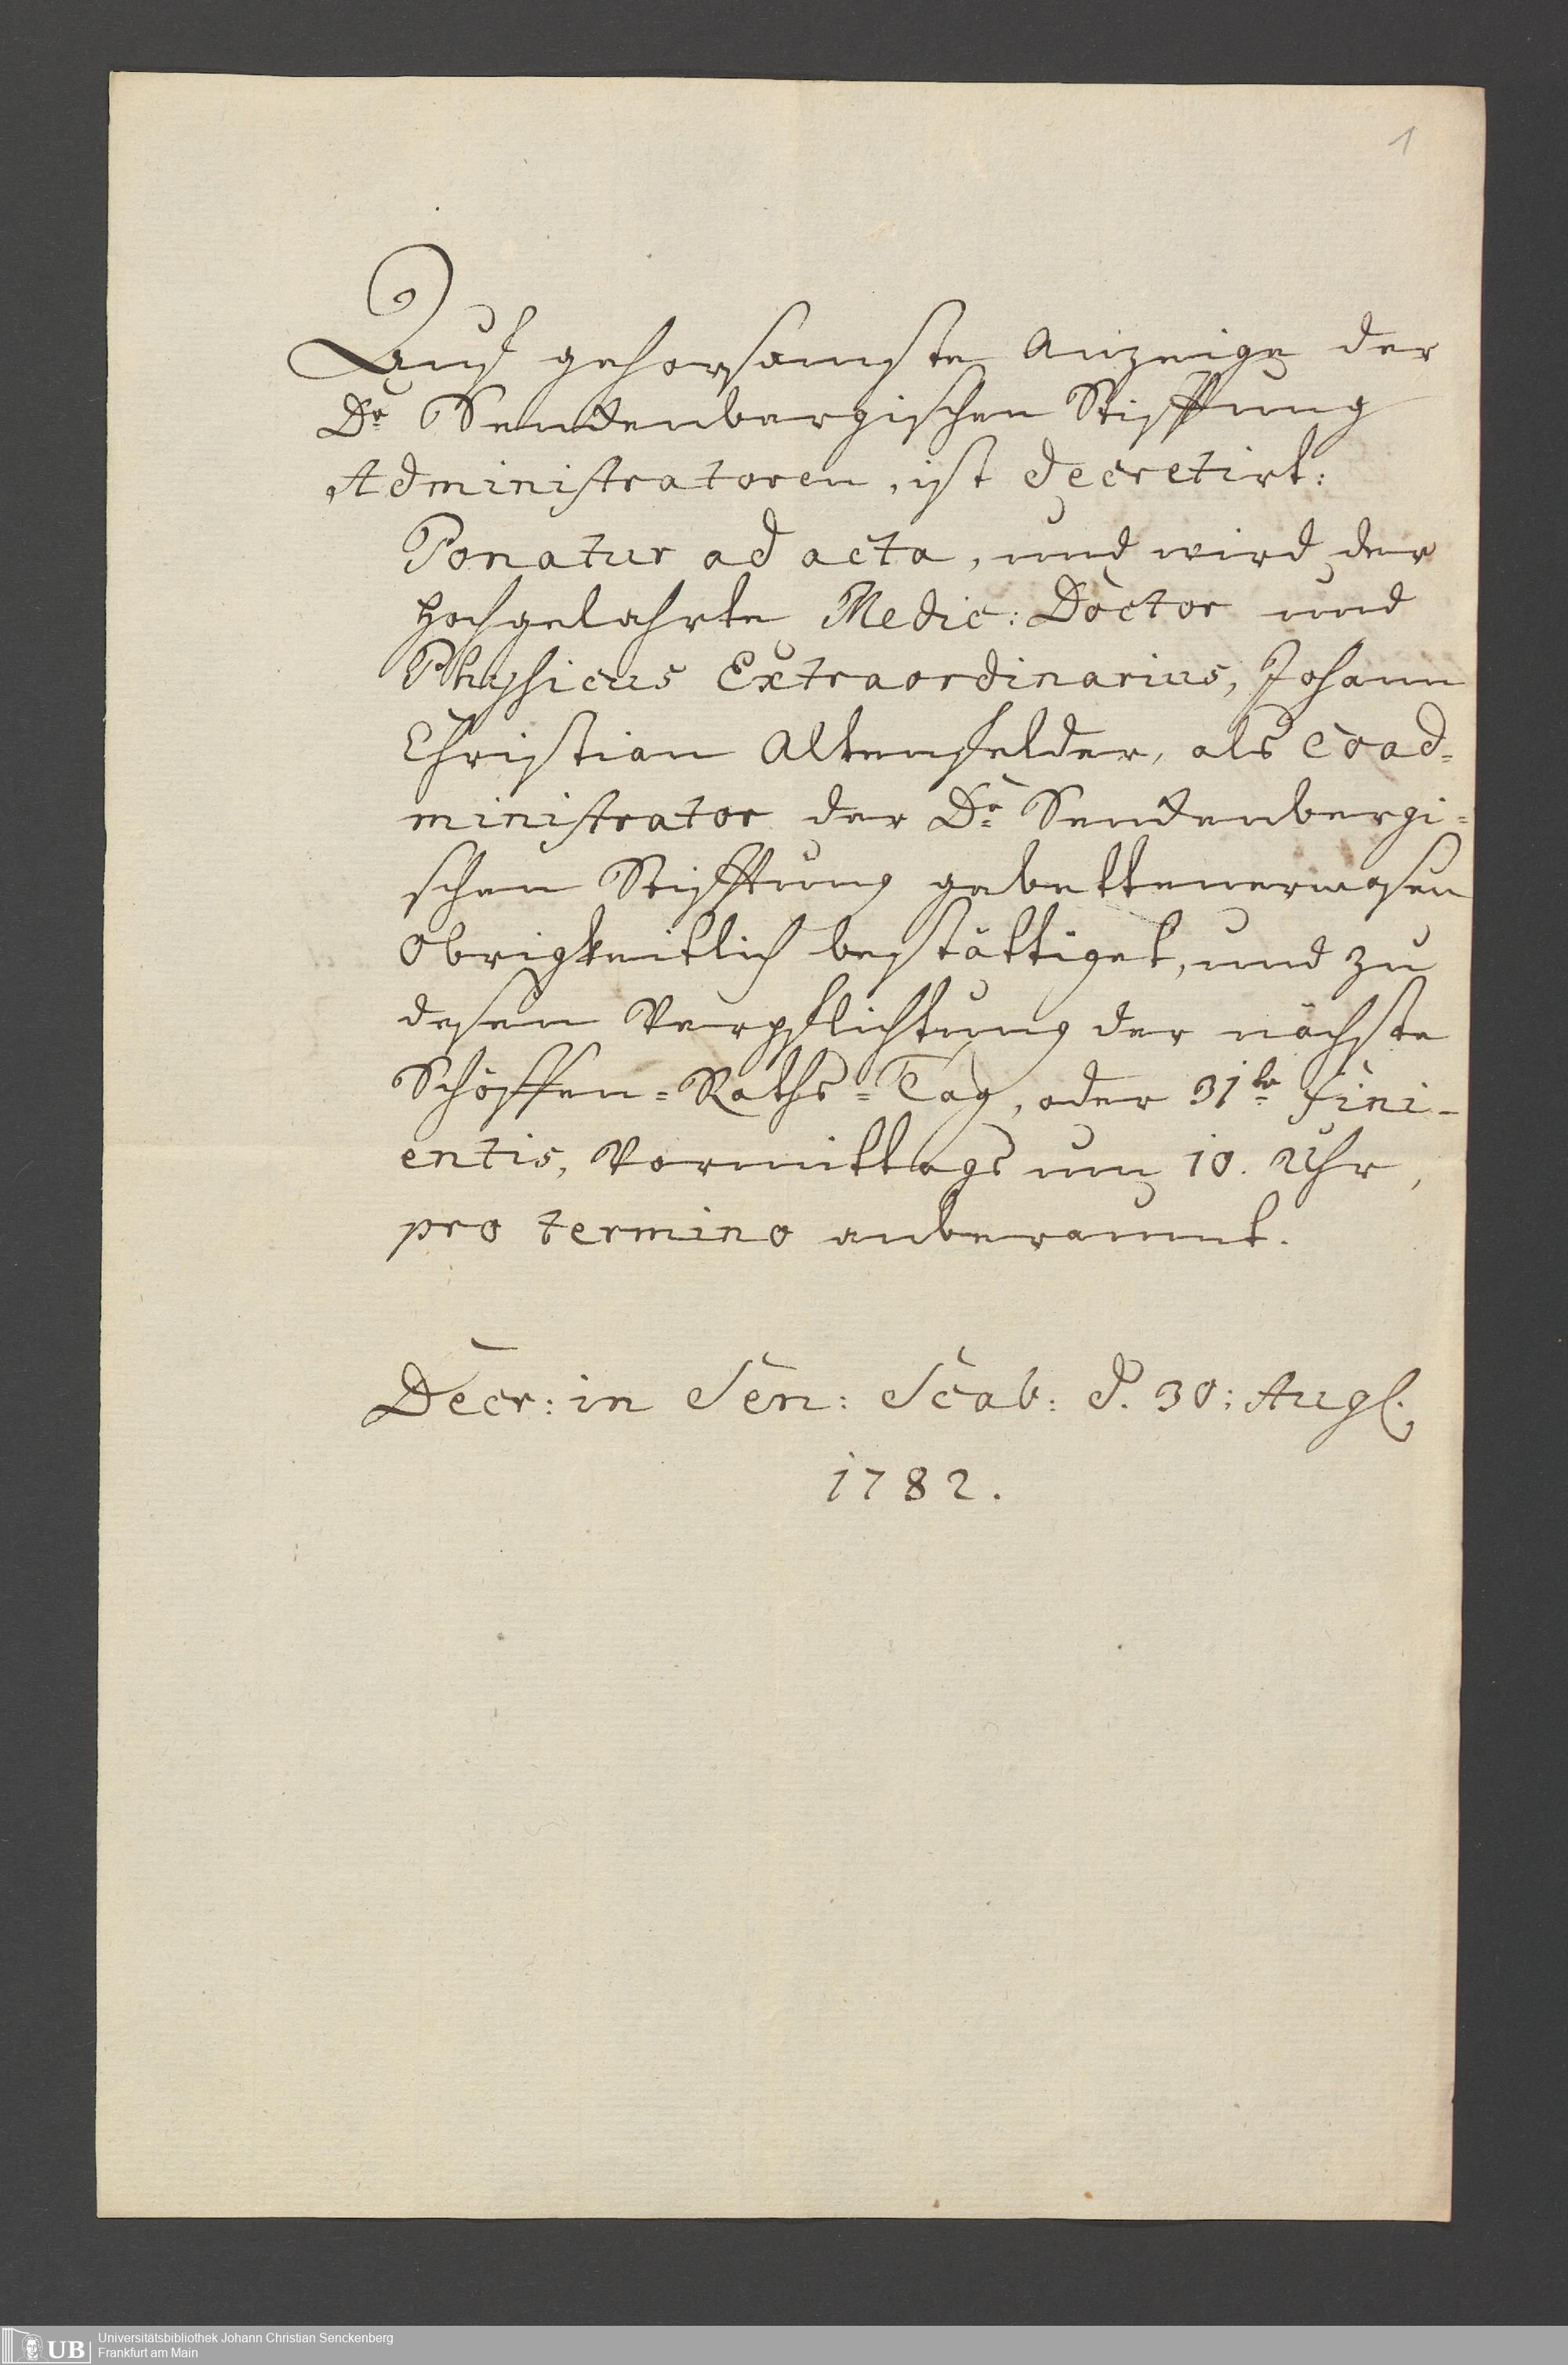 1
Auf gehorsamste Anzeige der
Dr. Senckenbergischen Stifftung
Administratoren, ist decretirt:
Ponatur ad acta, und wird der
hochgelahrte Medic: Doctor und
Physicus Extraordinarius, Johann
Christian Altenfelder, als Coad=
ministrator der Dr. Senckenbergi=
schen Stifftung gebettenermasen
Obrigkeitlich bestättiget, und zu
desen Verpflichtung der nächste
Schöffen=Raths=Tag, oder 31te fini-
entis, Vormittags um 10. Uhr,
pro termino anberaumt.
Decr: in Sen: Scab: d. 30: Aug.
1782.
UB
Universitätsbibliothek Johann Christian Senckenberg
Frankfurt am Main